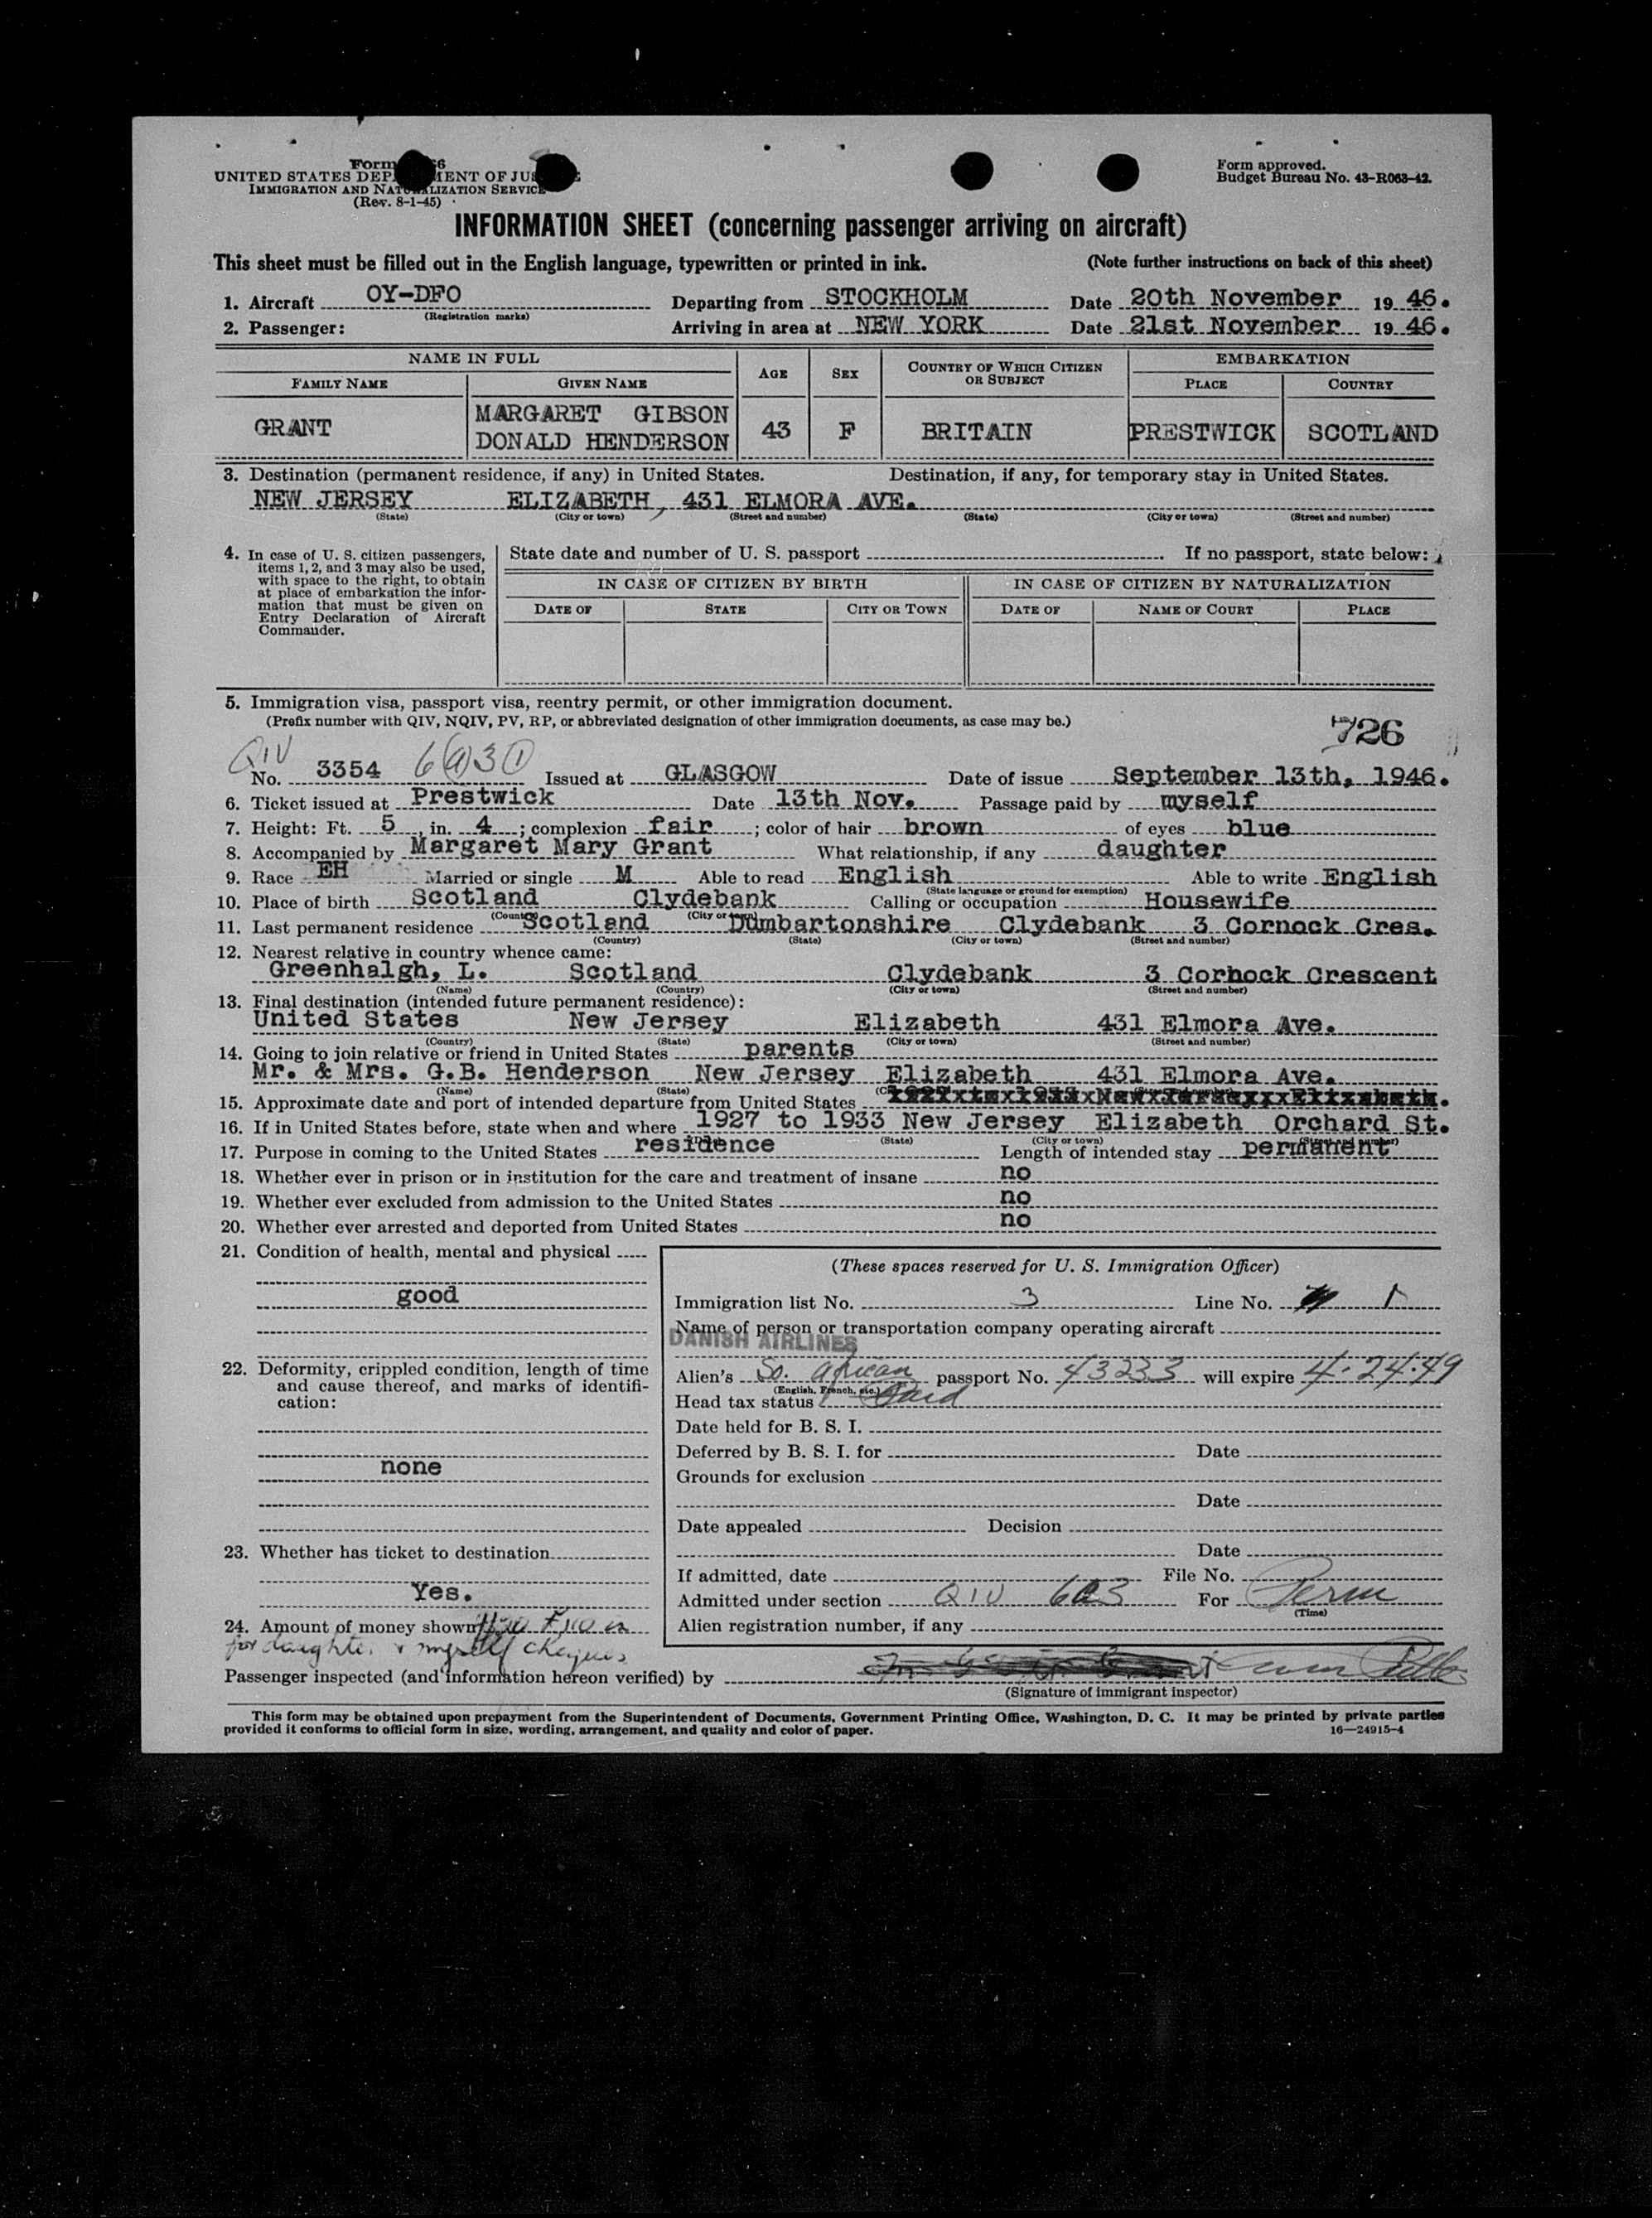 Form 66
UNITED STATES DEP MENT OF JUS
IMMIGRATION AND NATURALIZATION SERVICE
(Rev. 8-1-45)
Form approved.
Budget Bureau No. 43-R063-42.
INFORMATION SHEET (concerning passenger arriving on aircraft)
This sheet must be filled out in the English language, typewritten or printed in ink. (Note further instructions on back of this sheet)
1. Aircraft OY-DFO Departing from STOCKHOLM Date 20th November 19 46.
(Registration marks)
2. Passenger: Arriving in area at NEW YORK Date 21st November 19 46.
NAME IN FULL AGE SEX COUNTRY OF WHICH CITIZEN OR SUBJECT EMBARKATION
FAMILY NAME GIVEN NAME PLACE COUNTRY
GRANT MARGARET GIBSON DONALD HENDERSON 43 F BRITAIN PRESTWICK SCOTLAND
3. Destination (permanent residence, if any) in United States. Destination, if any, for temporary stay in United States.
NEW JERSEY ELIZABETH, 431 ELMORA AVE.
(State) (City or town) (Street and number) (State) (City or town) (Street and number)
4. In case of U. S. citizen passengers, items 1, 2, and 3 may also be used, with space to the right, to obtain at place of embarkation the information that must be given on Entry Declaration of Aircraft Commander.
State date and number of U. S. passport If no passport, state below:
IN CASE OF CITIZEN BY BIRTH IN CASE OF CITIZEN BY NATURALIZATION
DATE OF STATE CITY OR TOWN DATE OF NAME OF COURT PLACE
5. Immigration visa, passport visa, reentry permit, or other immigration document.
(Prefix number with QIV, NQIV, PV, RP, or abbreviated designation of other immigration documents, as case may be.)
726
QIV
No. 3354 6(a)3(1) Issued at GLASGOW Date of issue September 13th, 1946.
6. Ticket issued at Prestwick Date 13th Nov. Passage paid by myself
7. Height: Ft. 5, in. 4; complexion fair; color of hair brown of eyes blue
8. Accompanied by Margaret Mary Grant What relationship, if any daughter
9. Race EH Married or single M Able to read English Able to write English
(State language or ground for exemption)
10. Place of birth Scotland Clydebank Calling or occupation Housewife
(Country) (City or town)
11. Last permanent residence Scotland Dumbartonshire Clydebank 3 Cornock Cres.
(Country) (State) (City or town) (Street and number)
12. Nearest relative in country whence came:
Greenhalgh, L. Scotland Clydebank 3 Corhock Crescent
(Name) (Country) (City or town) (Street and number)
13. Final destination (intended future permanent residence):
United States New Jersey Elizabeth 431 Elmora Ave.
(Country) (State) (City or town) (Street and number)
14. Going to join relative or friend in United States parents
Mr. & Mrs. G.B. Henderson New Jersey Elizabeth 431 Elmora Ave.
(Name) (State)
15. Approximate date and port of intended departure from United States
16. If in United States before, state when and where 1927 to 1933 New Jersey Elizabeth Orchard St.
(State) (City or town) (Street and number)
17. Purpose in coming to the United States residence Length of intended stay permanent
18. Whether ever in prison or in institution for the care and treatment of insane no
19. Whether ever excluded from admission to the United States no
20. Whether ever arrested and deported from United States no
21. Condition of health, mental and physical
good
22. Deformity, crippled condition, length of time and cause thereof, and marks of identification:
none
23. Whether has ticket to destination
Yes.
24. Amount of money shown
for daughter & myself cheques
(These spaces reserved for U. S. Immigration Officer)
Immigration list No. 3 Line No. 1
Name of person or transportation company operating aircraft
DANISH AIRLINES
Alien's So. African passport No. 43233 will expire 4-24-49
(English, French, etc.)
Head tax status Paid
Date held for B. S. I.
Deferred by B. S. I. for Date
Grounds for exclusion
Date
Date appealed Decision
Date
If admitted, date File No.
Admitted under section QIV 6a3 For Perm
(Time)
Alien registration number, if any
Passenger inspected (and information hereon verified) by
(Signature of immigrant inspector)
This form may be obtained upon prepayment from the Superintendent of Documents, Government Printing Office, Washington, D. C. It may be printed by private parties
provided it conforms to official form in size, wording, arrangement, and quality and color of paper. 16—24915-4